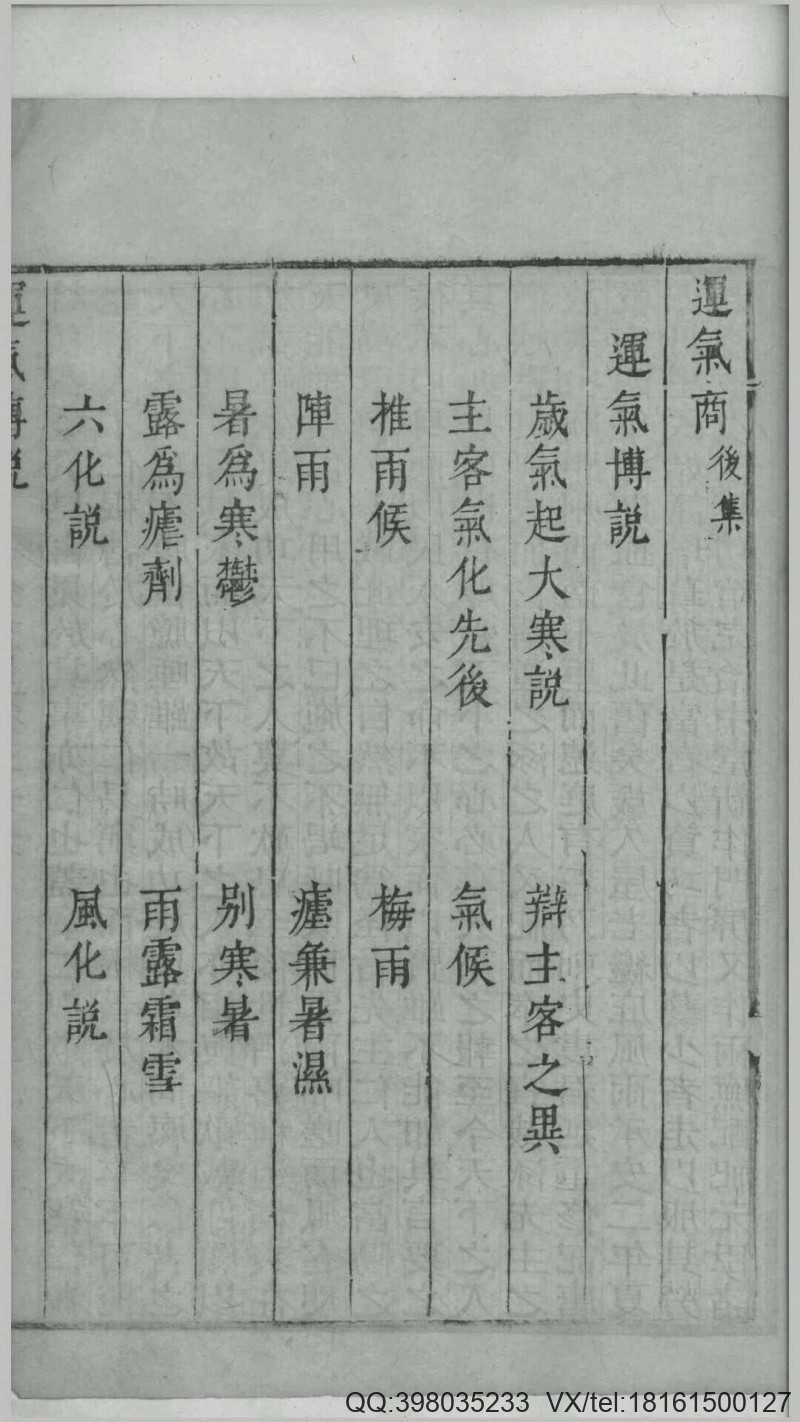 運氣商後集
運氣博説
歲氣起大寒説 辯主客之異
主客氣化先後 氣候
推雨候 梅雨
陣雨 瘧兼暑濕
暑爲寒鬱 别寒暑
露爲瘧劑 雨露霜雪
六化説 風化説
運氣博説
QQ:398035233 VX/tel:18161500127